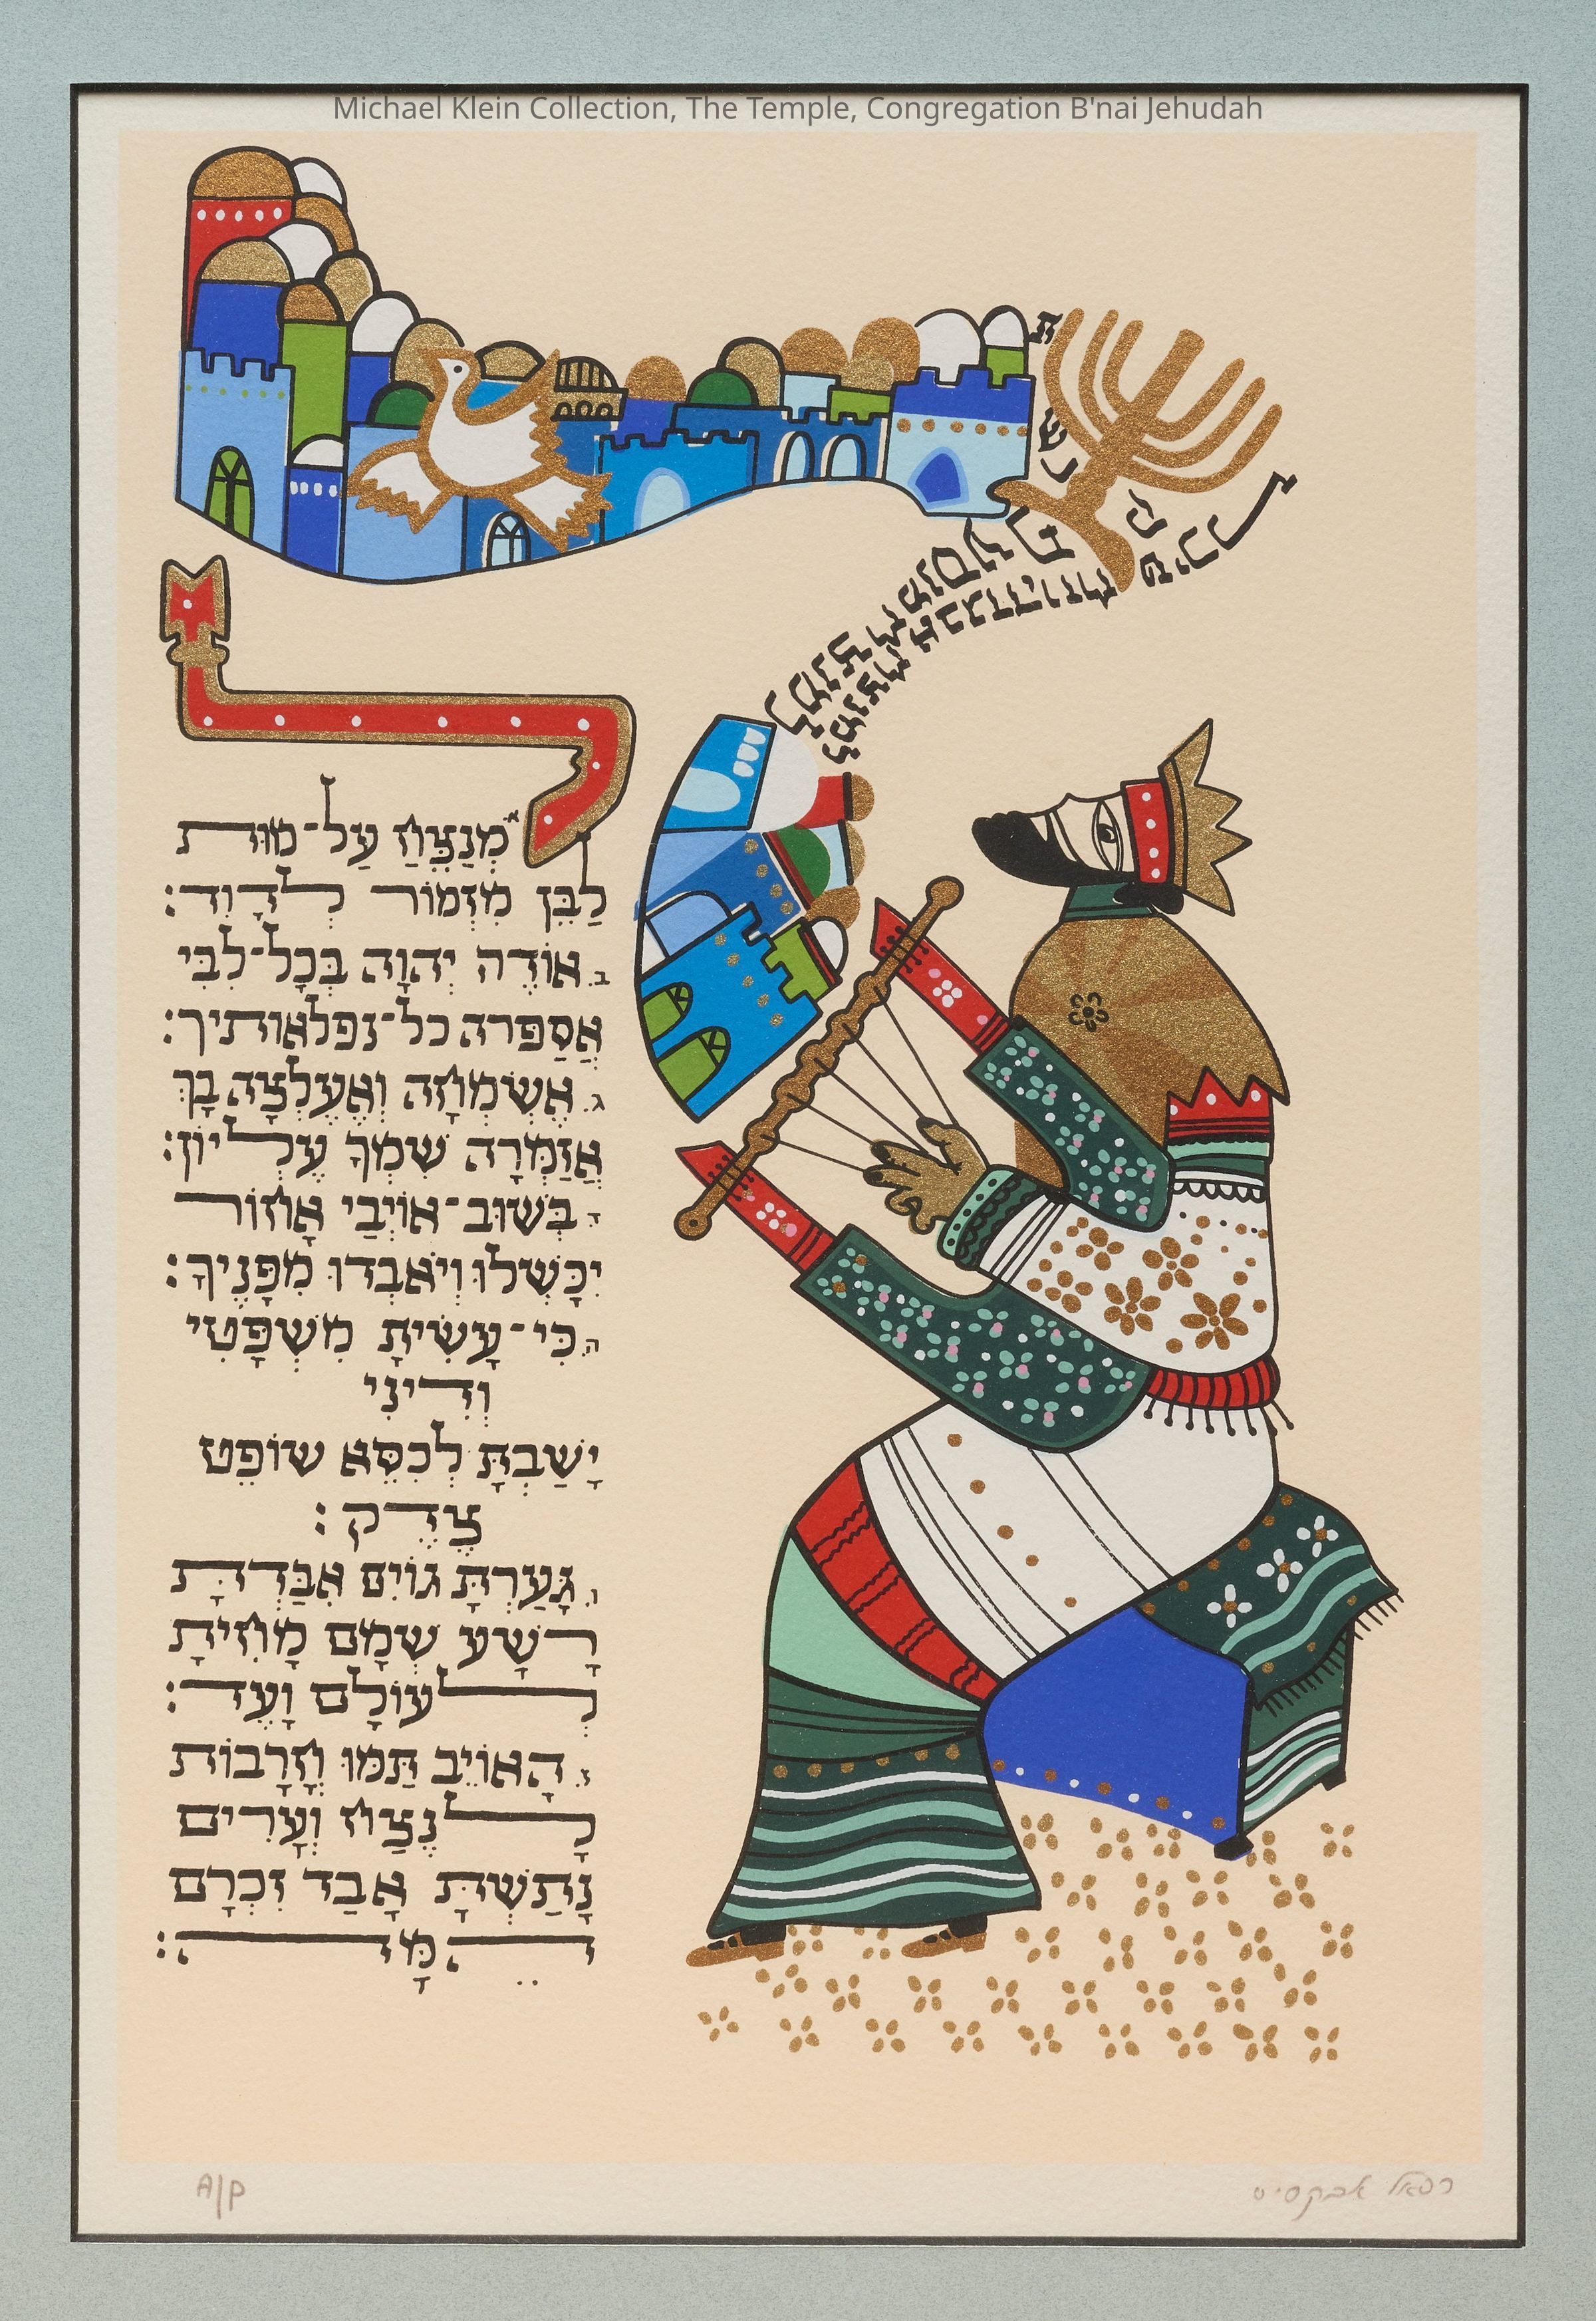 Michael Klein Collection, The Temple, Congregation B'nai Jehudah
א למְנַצֵּחַ עַל־מוּת
לַבֵּן מִזְמוֹר לְדָוִד:
ב. אוֹדֶה יְהוָה בְּכָל־לִבִּי
אֲסַפְּרָה כל־נפלאותיך:
ג. אֶשְׂמְחָה וְאֶעֶלְצָה בָךְ
אֲזַמְּרָה שִׁמְךָ עֶלְיוֹן:
ד. בְּשׁוּב־אוֹיְבַי אָחוֹר
יִכָּשְׁלוּ וְיֹאבְדוּ מִפָּנֶיךָ:
ה. כִּי־עָשִׂיתָ מִשְׁפָּטִי
וְדִינִי
יָשַׁבְתָּ לְכִסֵּא שׁוֹפֵט
צֶדֶק:
ו. גָּעַרְתָּ גוֹיִם אִבַּדְתָּ
רָשָׁע שְׁמָם מָחִיתָ
לְעוֹלָם וָעֶד:
ז. הָאוֹיֵב תַּמּוּ חֳרָבוֹת
לָנֶצַח וְעָרִים
נָתַשְׁתָּ אָבַד זִכְרָם
הֵמָּה:
A/P
רפאל אבקסיס